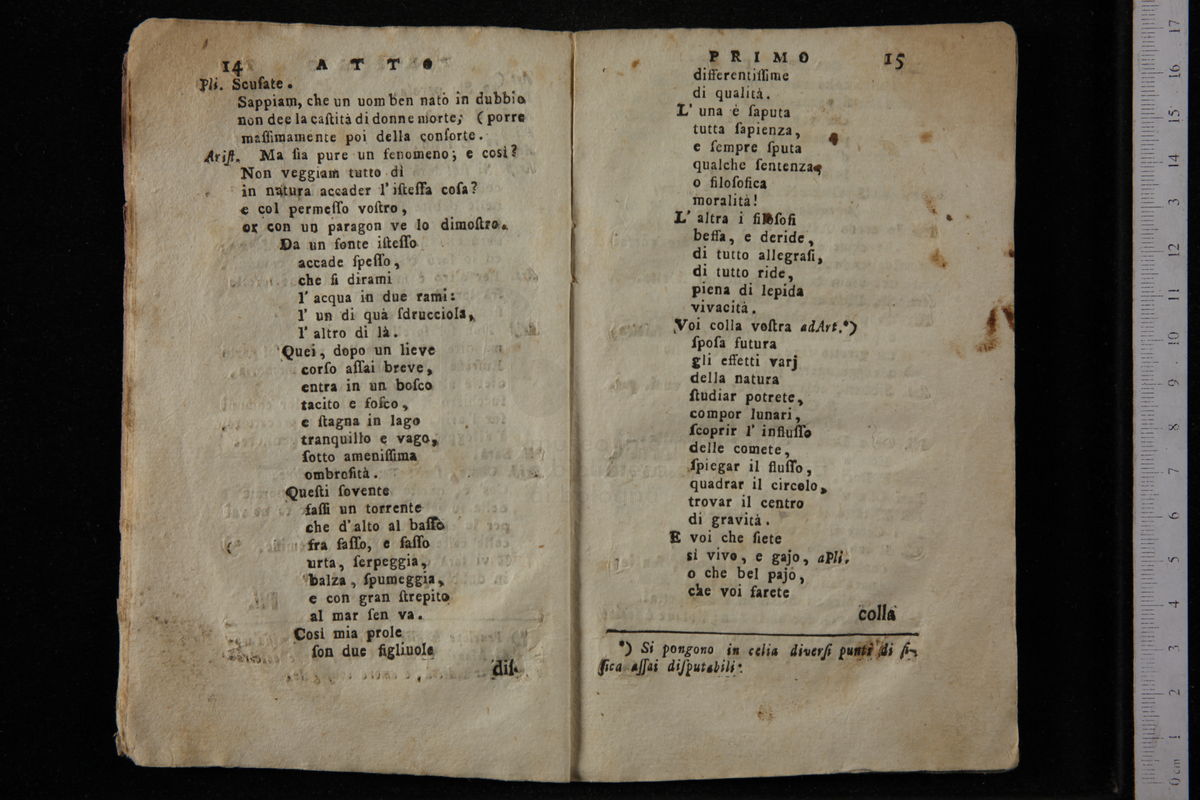 14 ATTO
Pli. Scuſate.
Sappiam, che un uom ben nato in dubbio
non dee la caſtità di donne morte, (porre
maſſimamente poi della conſorte.
Ariſt. Ma ſia pure un fenomeno; e così?
Non veggiam tutto dì
in natura accader l'iſteſſa coſa?
e col permeſſo voſtro,
or con un paragon ve lo dimoſtro.
Da un fonte iſteſſo
accade ſpeſſo,
che ſi dirami
l'acqua in due rami:
l'un di quà ſdrucciola,
l'altro di là.
Quei, dopo un lieve
corſo aſſai breve,
entra in un boſco
tacito e foſco,
e ſtagna in lago
tranquillo e vago,
ſotto ameniſſima
ombroſità.
Queſti ſovente
faſſi un torrente
che d'alto al baſſo
fra ſaſſo, e ſaſſo
urta, ſerpeggia,
balza, ſpumeggia,
e con gran ſtrepito
al mar ſen va.
Così mia prole
ſon due figliuole
diſ-
PRIMO 15
differentiſſime
di qualità.
L'una è ſaputa
tutta ſapienza,
e ſempre ſputa
qualche ſentenza,
o filoſofica
moralità!
L'altra i filoſofi
beffa, e deride,
di tutto allegraſi,
di tutto ride,
piena di lepida
vivacità.
Voi colla voſtra adArt.*)
ſpoſa futura
gli effetti varj
della natura
ſtudiar potrete,
compor lunari,
ſcoprir l'influſſo
delle comete,
ſpiegar il fluſſo,
quadrar il circolo,
trovar il centro
di gravità.
E voi che ſiete
sì vivo, e gajo, aPli.
o che bel pajo,
che voi farete
colla
*) Si pongono in celia diverſi punti di fi-
ſica aſſai diſputabili.
0 cm 1 2 3 4 5 6 7 8 9 10 11 12 3 14 15 16 17